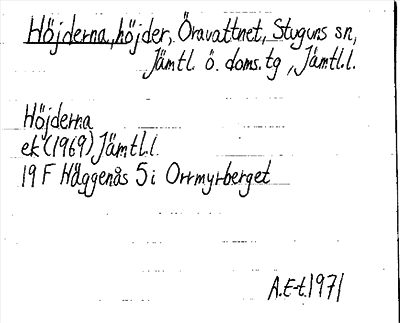 Höjderna, höjder, Öravattnet, Stuguns sn,
Jämtl. ö. doms.tg, Jämtl.l.
Höjderna
ek (1969) Jämtl.l.
19 F Häggenås 5 i Orrmyrberget
A.E-t.1971